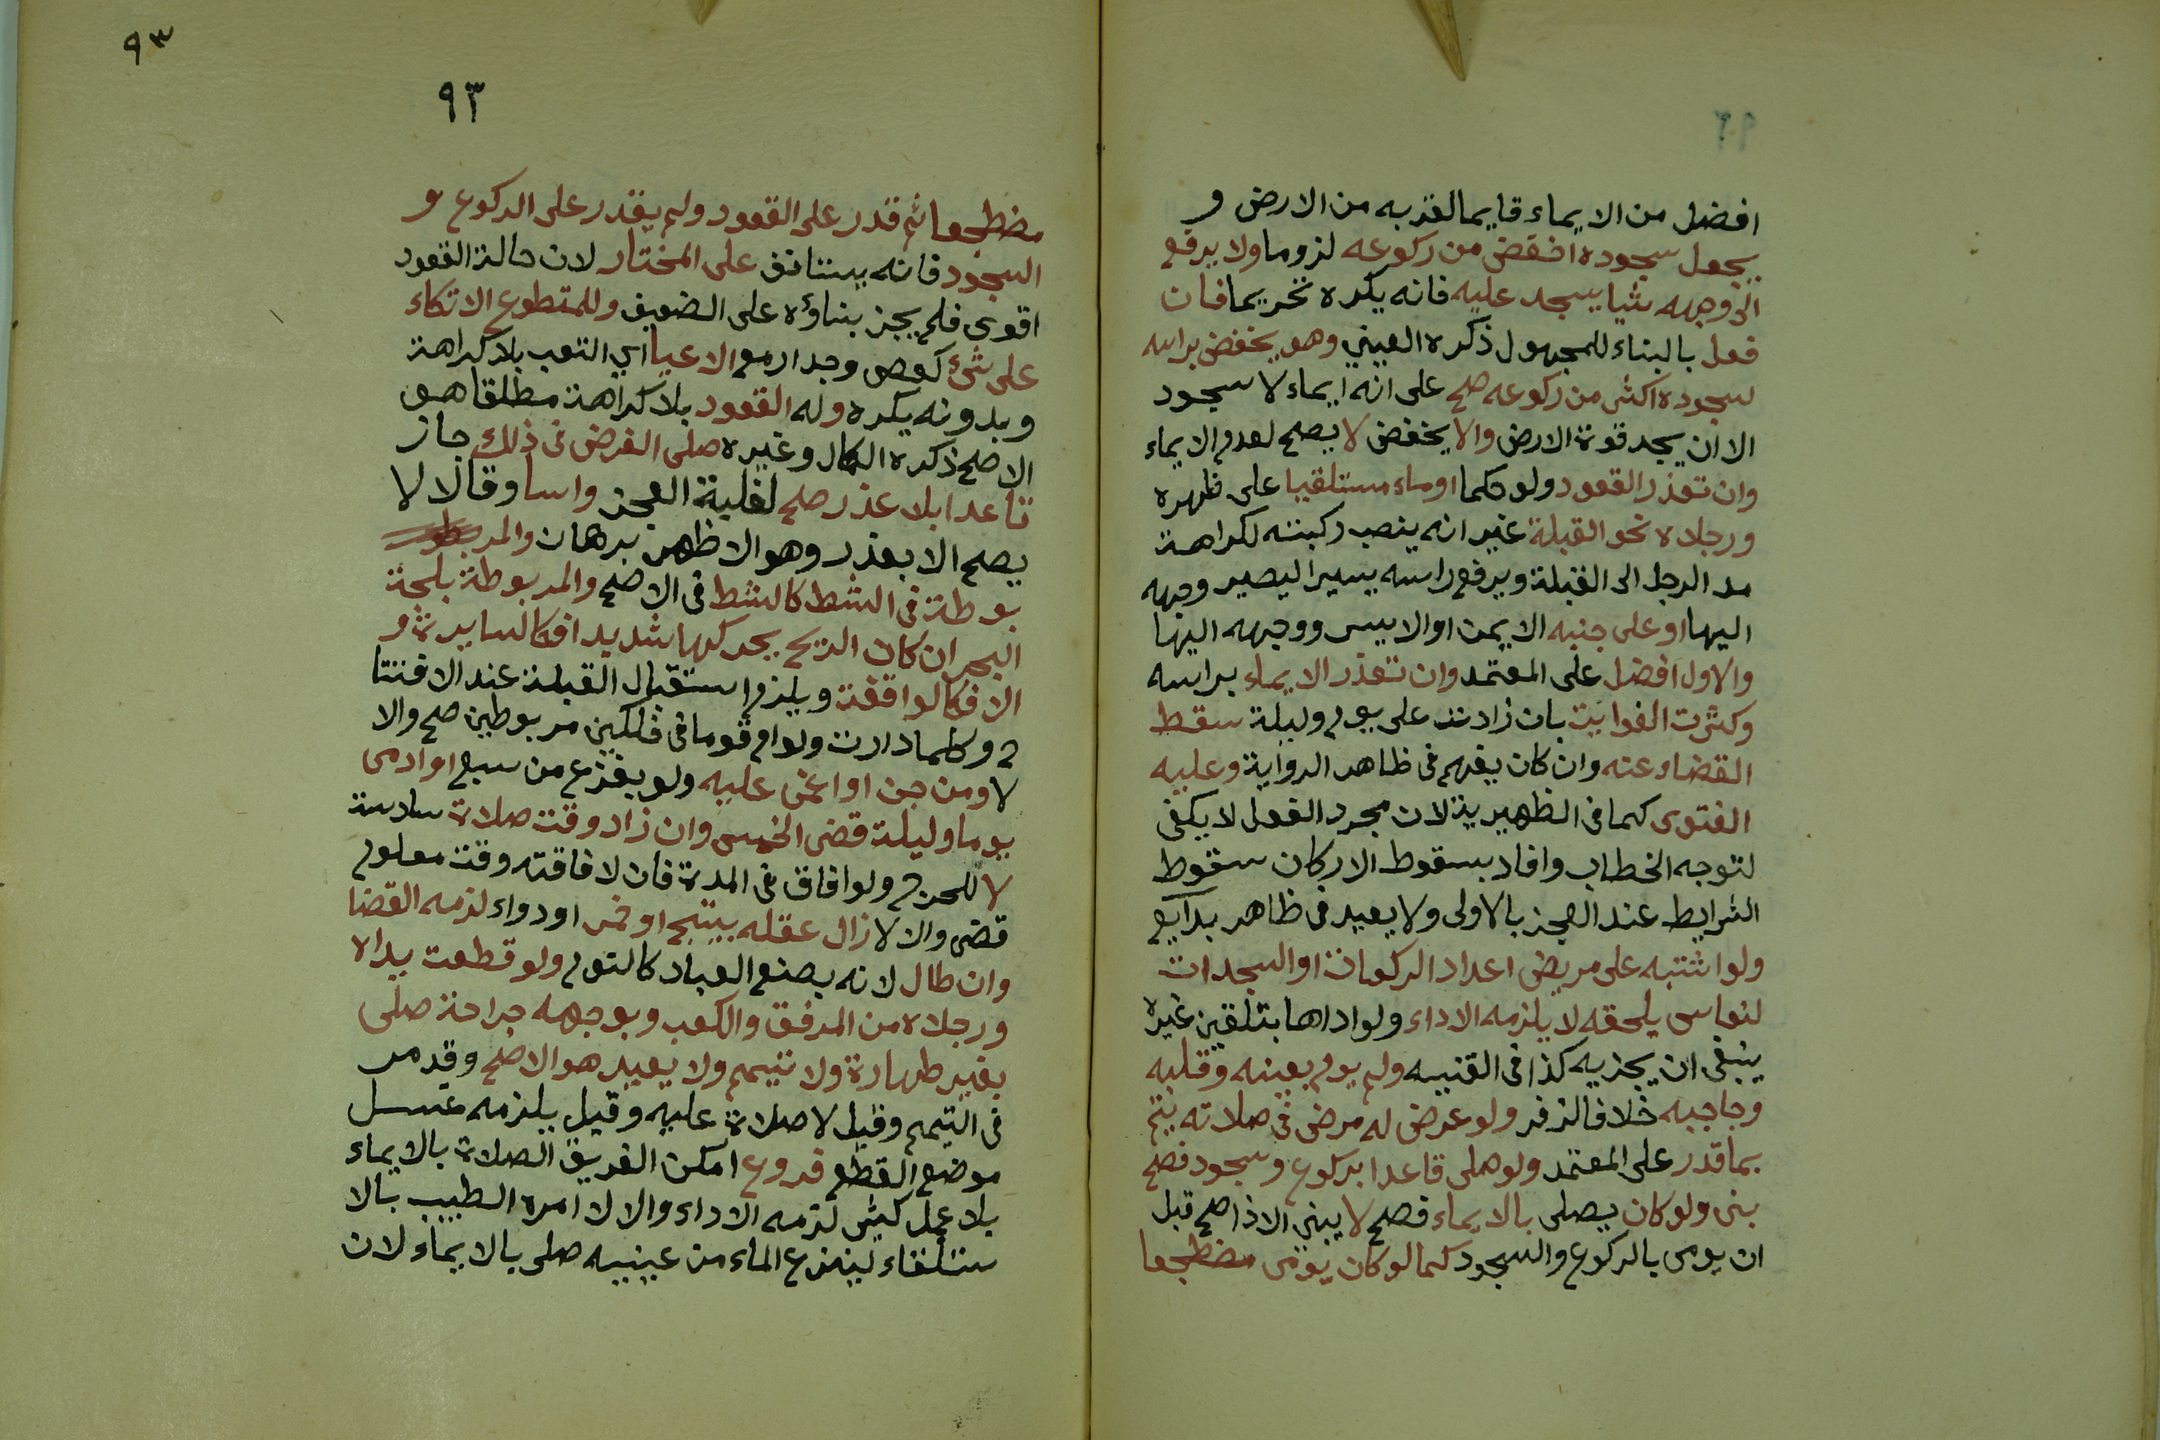 افضل من الايماء قايما لقربه من الارض و
يجعل سجوده اخفض من ركوعه لزوما ولا يرفع
الى وجهه شيا يسجد عليه فانه يكره تحريما فان
فعل بالبناء للمجهول ذكره العيني وهو يخفض براسه
لسجوده اكثر من ركوعه صح على انه ايماء لا سجود
الا ان يجد قوة الارض والا يخفض لا يصح لعدم الايماء
وان تعذر القعود ولو حكما اوماء مستلقيا على ظهره
ورجلاه نحو القبلة غير انه ينصب ركبتيه لكراهة
مد الرجل الى القبلة ويرفع راسه يسيرا ليصير وجهه
اليها او على جنبه الايمن او الايسر ووجهه اليها
والاول افضل على المعتمد وان تعذر الايماء براسه
وكثرت الفوايت بان زادت على يوم وليلة سقط
القضاء عنه وان كان يفهم فى ظاهر الرواية وعليه
الفتوى كما فى الظهيرية لان مجرد الفعل لا يكفى
لتوجه الخطاب وافاد بسقوط الاركان سقوط
الشرايط عند العجز بالاولى ولا يعيد فى ظاهر بدايع
ولو اشتبه على مريض اعداد الركعات او السجدات
لنعاس يلحقه لا يلزمه الاداء ولو اداها بتلقين غيره
ينبغى ان يجزيه كذا فى القنيه ولم يوم بعينه وقلبه
وحاجبه خلافا لزفر ولو عرض له مرض فى صلاته يتم
بما قدر على المعتمد ولو صلى قاعدا بركوع وسجود فصح
بنى ولو كان يصلى بالايماء فصح لا يبني الا اذا صح قبل
ان يومى بالركوع والسجود كما لو كان يومى مضطجعا
٩٣
٩٣
مضطجعا ثم قدر على القعود ولم يقدر على الركوع و
السجود فانه يستانف على المختار لان حالة القعود
اقوى فلم يجز بناؤه على الضعيف وللمتطوع الاتكاء
على شئ كعصى وجدار مع الاعيا اي التعب بلا كراهة
وبدونه يكره وله القعود بلا كراهة مطلقا هو
الاصح ذكره الكمال وغيره صلى الفرض فى ذلك جاز
قاعدا بلا عذر صح لغلبة العجز واسا وقالا لا
يصح الا بعذر وهو الاظهر برهان والمر
بوطة فى الشط كالشط فى الاصح والمربوطة بلجة
البحر ان كان الريح يحركها شديدا فكالسايرة و
الا فكالواقفة ويلزم استقبال القبلة عند الافتتا
ح وكلما دارت ولو ام قوما فى فلكين مربوطين صح والا
لا ومن جن او اغمى عليه ولو بفزع من سبع او ادمى
يوما وليلة قضى الخمس وان زاد وقت صلاة سادسة
لا للحرج ولو افاق فى المدة فان لافاقته وقت معلوم
قضى والا لا زال عقله ببنج او خمر او دواء لزمه القضا
وان طال لانه بصنع العباد كالنوم ولو قطعت يداه
ورجلاه من المرفق والكعب وبوجهه جراحة صلى
بغير طهارة ولا تيمم ولا يعيد هو الاصح وقد مر
فى التيمم وقيل لا صلاة عليه وقيل يلزمه غسل
موضع القطع فروع امكن الغريق الصلاة بالايماء
بلا عمل كثير لزمه الاداء والا لا امره الطبيب بالا
ستلقاء لينزع الماء من عينيه صلى بالايماء لان